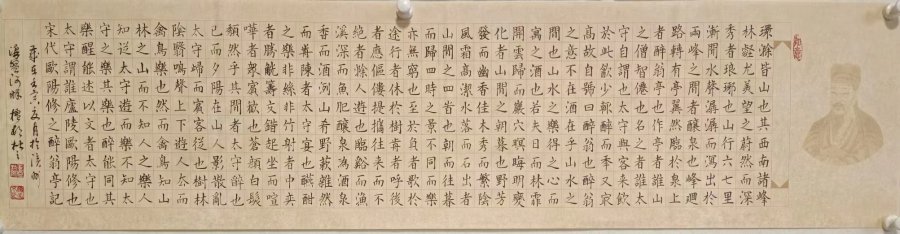 環滁皆山也其西南諸峰
林壑尤美望之蔚然而深
秀者琅琊也山行六七里
漸聞水聲潺潺而瀉出於
兩峰之間者釀泉也峰廻
路轉有亭翼然臨於泉上
者醉翁亭也作亭者誰山
之僧智僊也名之者誰太
守自謂也太守與客來飲
於此飲少輒醉而年又最
高故自號曰醉翁也醉翁
之意不在酒在乎山水之
間也山水之樂得之心而
寓之酒也若夫日出而林霏
開雲歸而巖穴暝晦明變
化者山間之朝暮也野芳
發而幽香佳木秀而繁陰
風霜高潔水落而石出者
山間之四時也朝而往暮
而歸四時之景不同而樂
亦無窮也至於負者歌於
途行者休於樹前者呼後
者應傴僂提攜往來而不
絕者滁人遊也臨谿而漁
溪深而魚肥釀泉為酒泉
香而酒洌山肴野蔌雜然
而前陳者太守宴也宴酣
之樂非絲非竹射者中奕
者勝觥籌交錯起坐而諠
嘩者衆賓歡也蒼顏白髮
頹然乎其間者太守醉也
已而夕陽在山人影散亂
太守歸而賓客從也樹林
陰翳鳴聲上下遊人去而
禽鳥樂也然而禽鳥知山
林之樂而不知人之樂人
知從太守遊而樂而不知太
守之樂其樂也醉能同其
樂醒能述以文者太守也
太守謂誰廬陵歐陽修也
宋代歐陽修之醉翁亭記